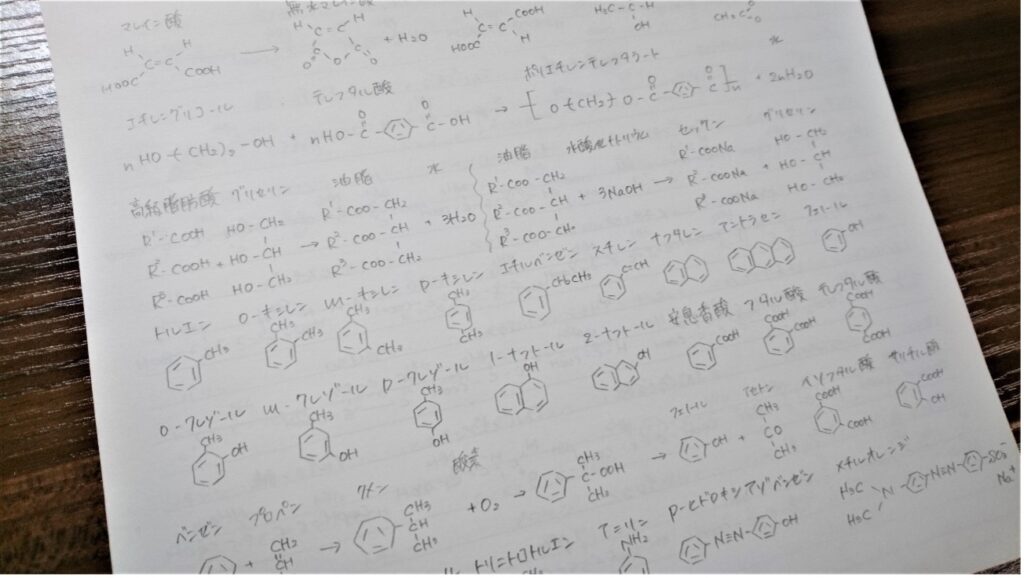 マレイン酸 無水マレイン酸
H H C=C HOOC COOH → H H C=C C O C O O + H2O HOOC C=C COOH H H3C-C-H OH
エチレングリコール テレフタル酸 ポリエチレンテレフタラート 水
n HO-(CH2)2-OH + nHO-C-C-OH O O → [O-(CH2)-O-C-C]n O O + 2nH2O
高級脂肪酸 グリセリン 油脂 水 油脂 水酸化ナトリウム セッケン グリセリン
R1-COOH HO-CH2 R1-COO-CH2 R1-COO-CH2 R1-COONa HO-CH2
R2-COOH + HO-CH → R2-COO-CH + 3H2O R2-COO-CH + 3NaOH → R2-COONa + HO-CH
R3-COOH HO-CH2 R3-COO-CH2 R3-COO-CH2 R3-COONa HO-CH2
トルエン o-キシレン m-キシレン p-キシレン エチルベンゼン スチレン ナフタレン アントラセン フェノール
CH3 CH3 CH3 CH3 CH3 CH3 CH3 CH2CH3 OH
o-クレゾール m-クレゾール p-クレゾール 1-ナフトール 2-ナフトール 安息香酸 フタル酸 テレフタル酸
CH3 OH CH3 OH CH3 OH OH OH COOH COOH COOH COOH COOH
酸素 フェノール アセトン イソフタル酸 サリチル酸
ベンゼン プロペン クメン
+ CH2 CH CH3 → CH3 CH CH3 + O2 → CH3 C-OOH CH3 → OH + CH3 CO CH3 COOH COOH COOH OH
トリニトロトルエン アニリン p-ヒドロキシアゾベンゼン メチルオレンジ
NH2 N=N OH H3C H3C N N=N SO3- Na+